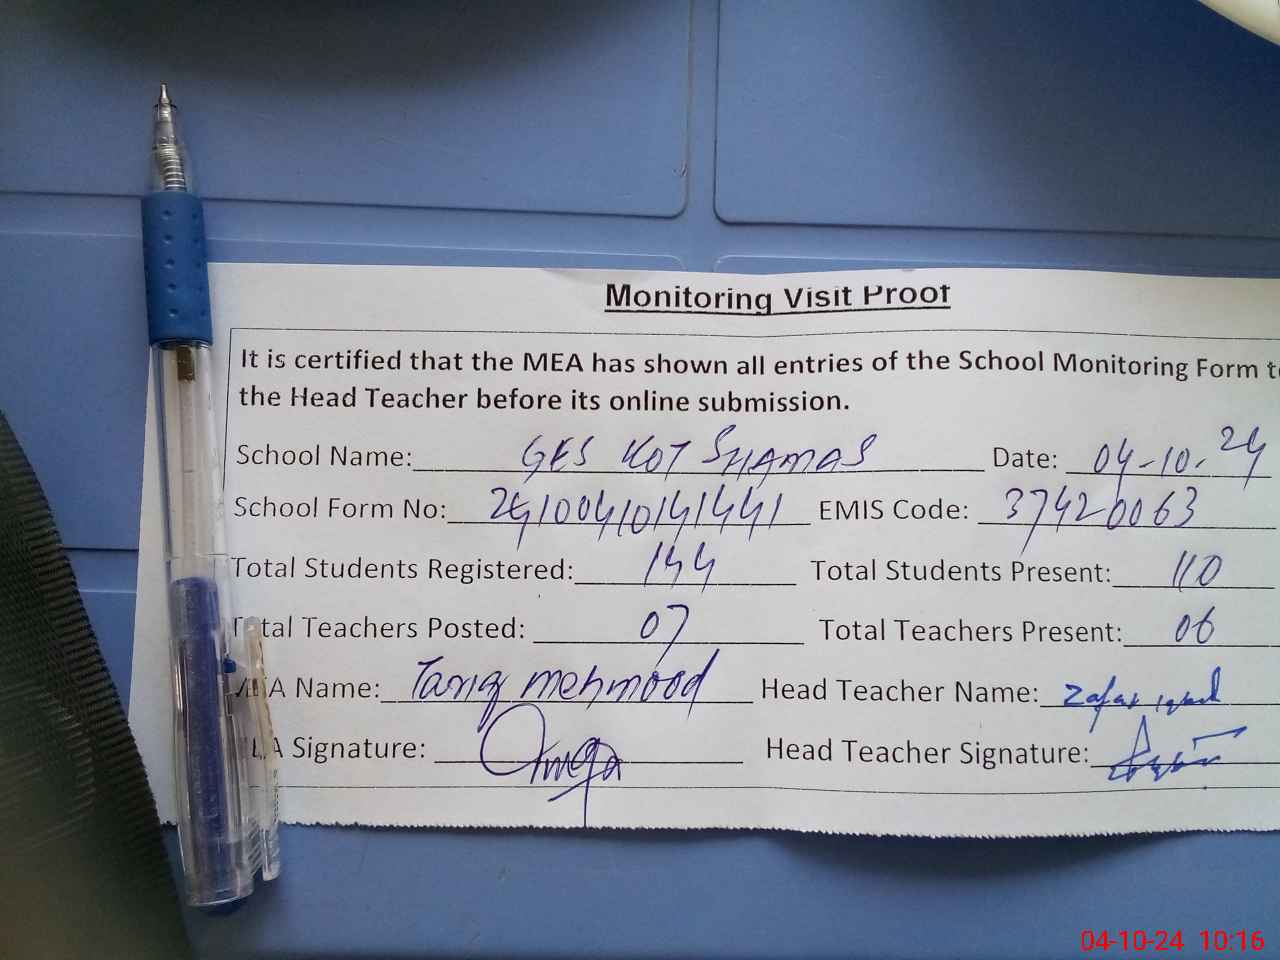 Monitoring Visit Proof
It is certified that the MEA has shown all entries of the School Monitoring Form to
the Head Teacher before its online submission.
School Name: GES KOT SHAMAS Date: 04-10-24
School Form No: 24100410141441 EMIS Code: 37420063
Total Students Registered: 144 Total Students Present: 110
Total Teachers Posted: 07 Total Teachers Present: 06
MEA Name: Tariq mehmood Head Teacher Name: Zafar iqbal
MEA Signature: Head Teacher Signature:
04-10-24 10:16